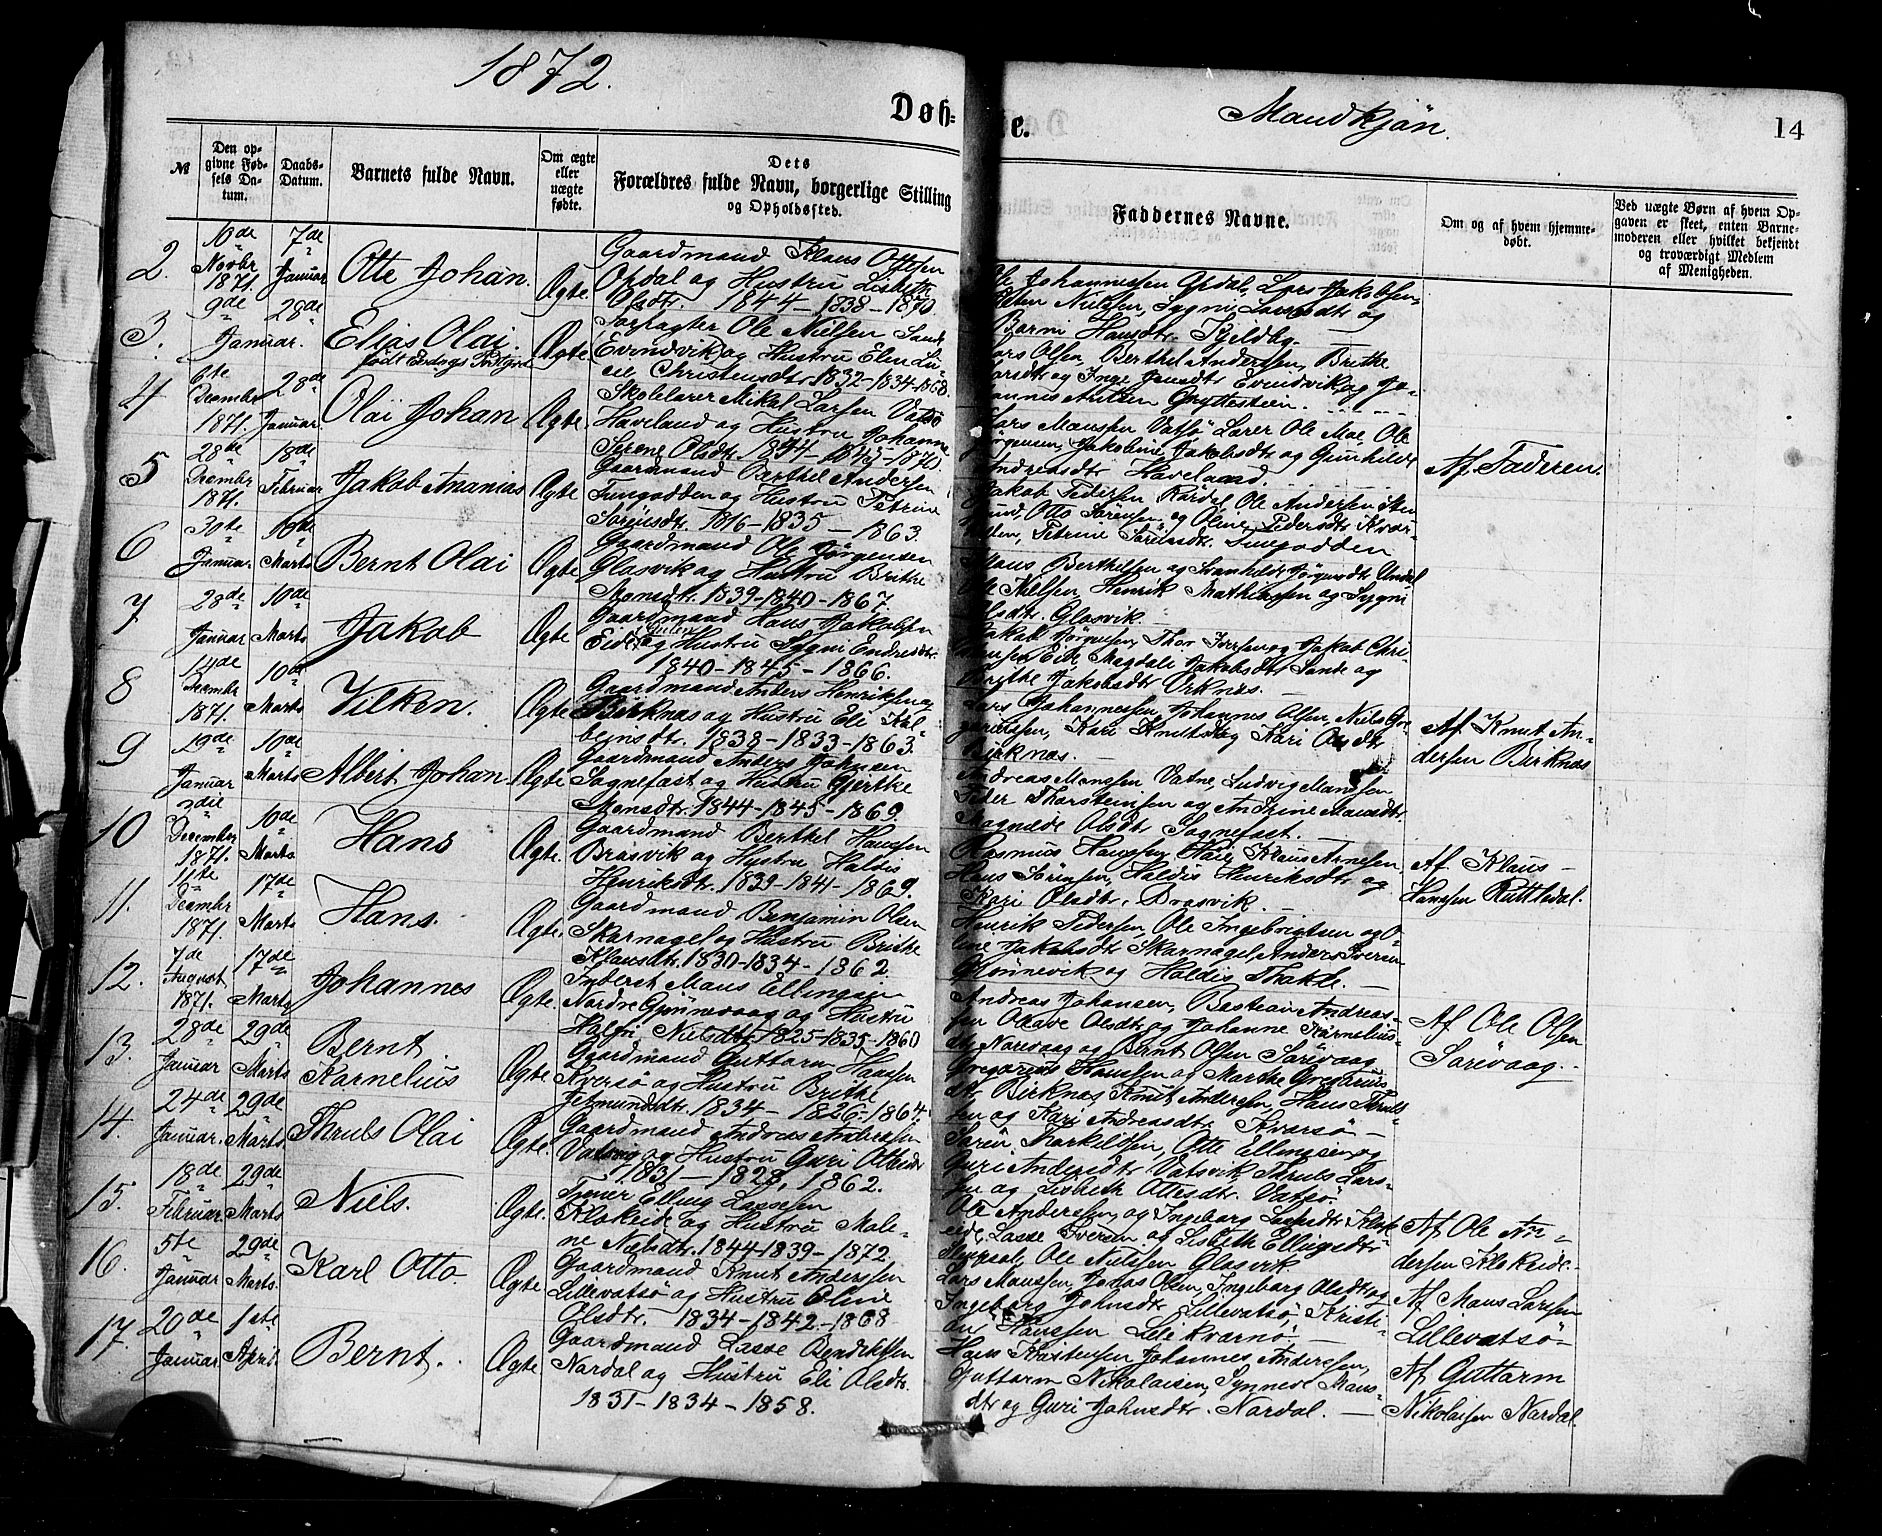 1872.
Døb=
e.
Mandkjøn.
14
№
Den opgivne Fødsels Datum.
Daabs-Datum.
Barnets fulde Navn.
Om ægte eller uægte fødte.
Dets
Forældres fulde Navn, borgerlige Stilling
og Opholdssted.
Faddernes Navne.
Om og af hvem hjemmedøbt.
Ved uægte Børn af hvem Opgaven er skeet, enten Barnemoderen eller hvilket bekjendt og troværdigt Medlem af Menigheden.
2. 16de Novbr 1871. 7de Januar Otte Johan. Ægte
Gaardmand Klaus Ottesen
Opdal og Hustru Lisbeth
Olsdtr. 1844-1838-1870.
Ole Johannessen Opdal, Lars Jakobsen,
Nielsen, Sygni Larsdtr og
Hansdtr Kjeldby
3. 9de Januar. 28de Elias Olai. Ægte
Ole Nielsen Sande
Evindvik og Hustru Elen Lu-
cie Christensdtr. 1832-1834-1868.
Lars Olsen, Berthel Anderssen, Brithe
Larsdtr og Inge Jensdtr Evindvik, og Jo-
hannes Gryttestein.
4 6te December 1871. 28de Januar. Olai Johan Ægte
Skolelærer Mikal Larsen Vatsø
Haveland og Hustru Johanne
Serene Olsdtr. 1844-1845-1870.
Lars Monssen Vatsø Lærer Ole Moe, Ole
Jørgensen, Jakobine Jakobsdtr og Gunhilde
Andreasdtr Haveland.
5 28de Decembr 1871. 18de Februar Jakob Ananias Ægte
Gaardmand Barthel Andersen
Tungodden og Hustru Petrine
Sørensdtr. 1816-1835-1863.
Jakob Pedersen Ole Andersen
Otto Sørensen og Oline Pedersdtr
Petrine Sørensdtr. Tungodden
Af Faderen.
6 30te Januar. 10de Marts Bernt Olai Ægte
Gaardmand Ole Jørgensen
Glasvik og Hustru Brithe
Monsdtr. 1839-1840-1867.
Berthelsen og Jørgensdtr
Ole Nielsen, Henrik Mathiassen og Sygni
Olsdtr. Glasvik
7 28de Januar 10de Marts Jakob Ægte
Gaardmand Hans Jakobsen
Eide og Hustru Sygni Endresdtr.
1840-1845-1866.
Jakob Jørgensen, Thor Iversen og Jakob Chri-
Eide, Magdali Jakobsdtr Sande og
Brythe Jakobsdtr Ørknæs.
8 14de Decembr 1871. 10de Marts Vilken. Ægte
Gaardmand Anders Henriksen
Birknæs og Hustru Eli Kol-
beinsdtr. 1838-1833-1863.
Lars Johannessen, Johannes Olsen, Niels Gre-
gariussen, Kari Knutsdtr og Kari Olsdtr
Birknæs.
Af Knut An-
dersen Birknæs
9 29de Januar 10de Marts Albert Johan. Ægte
Gaardmand Anders Johnsen
Sognefæst og Hustru Gjertke
Monsdtr. 1844-1845-1869.
Andreas Monssen Vatne, Ludvig Monssen
Peder Thorsteinsen og Andrine Monsdtr.
Olsdtr Sognefæst.
10 2die December 1871. 10de Marts Hans Ægte
Gaardmand Berthel Hanssen
Brosvik og Hustru Haldis
Henriksdtr. 1839-1841-1869.
Rasmus Hanssen Klaus Arnesen
Hans Sørensen, Haldis Henriksdtr og
Kari Olsdtr. Brosvik.
Af Klaus
Hanssen Rutledal.
11. 11te Decembr 1871. 17de Marts Hans. Ægte.
Gaardmand Benjamin Olsen
Skarnagel og Hustru Brithe
Klausdtr. 1830-1834-1862.
Henrik Pedersen, Ole Ingebrigtsen og O-
line Jakobsdtr Skarnagel Anders Iversen
Grønnevik og Haldis
12. 7de August 1871. 17de Marts Johannes Ægte
Inderst Mons Ellingsen
Nordre Gjønnevaag og Hustru
Nielsdtr. 1825-1835-1860
Andreas Johansen, Bastian Andreas-
sen Olave Olsdtr og Johanne Karnelius-
dtr Norevaag og Bernt Olsen Sørevaag
Af Ole Olsen
Sørevaag.
13. 28de Januar 29de Marts Bernt Karnelius Ægte
Gaardmand Guttorm Hanssen
Kversø og Hustru Brithe
Jetmundsdtr. 1834-1826-1864.
Gregorius Hanssen og Marthe Gregorius-
dtr Birknæs, Knut Andersen, Hans Thruls-
sen og Kari Andreasdtr Kversø
14. 24de Januar. 29de Marts Thruls Olai Ægte.
Gaardmand Andreas Anderssen
og Hustru Guri Ottesdtr
1831-1828, 1862.
Søren Torkildsen, Otte Ellingsen og
Guri Andersdtr Vatsvik, Thruls Lars-
sen og Lisbeth Ottesdtr. Vatsø.
15. 18de Februar. 29de Marts Niels. Ægte.
Elling Lassesen
Klokeide og Hustru Male-
ne Nielsdtr. 1844-1839-1872.
Ole Anderssen, og Ingeborg Lassesdtr Klok-
eide, Lasse Iversen og Lisbeth Ellingsdtr
Ole Nielssen Glasvik
Af Ole An-
dersen Klokeide
16. 5te Januar 29de Marts. Karl Otto. Ægte
Gaardmand Knut Anderssen
Lillevatsø og Hustru Oline
Olsdtr. 1834-1842-1868
Lars Monssen, Jonas Olsen, Ingeborg Olsdtr og
Ingeborg Johnsdtr Lillevatsø, Kristi-
an Hanssen Lille Kversø.
Af Mons Larssen
Lillevatsø
17. 20de Januar. 1ste April Bernt. Ægte
Gaardmand Lasse Bendiktsen
Nordal og Hustru Eli Olsdtr.
1831-1834-1858.
Hans Kristensen Johannes Anderssen,
Guttorm Nikolaisen, Synneve Mons-
dtr og Guri Johnsdtr. Nordal.
Af Guttorm
Nikolaisen Nordal